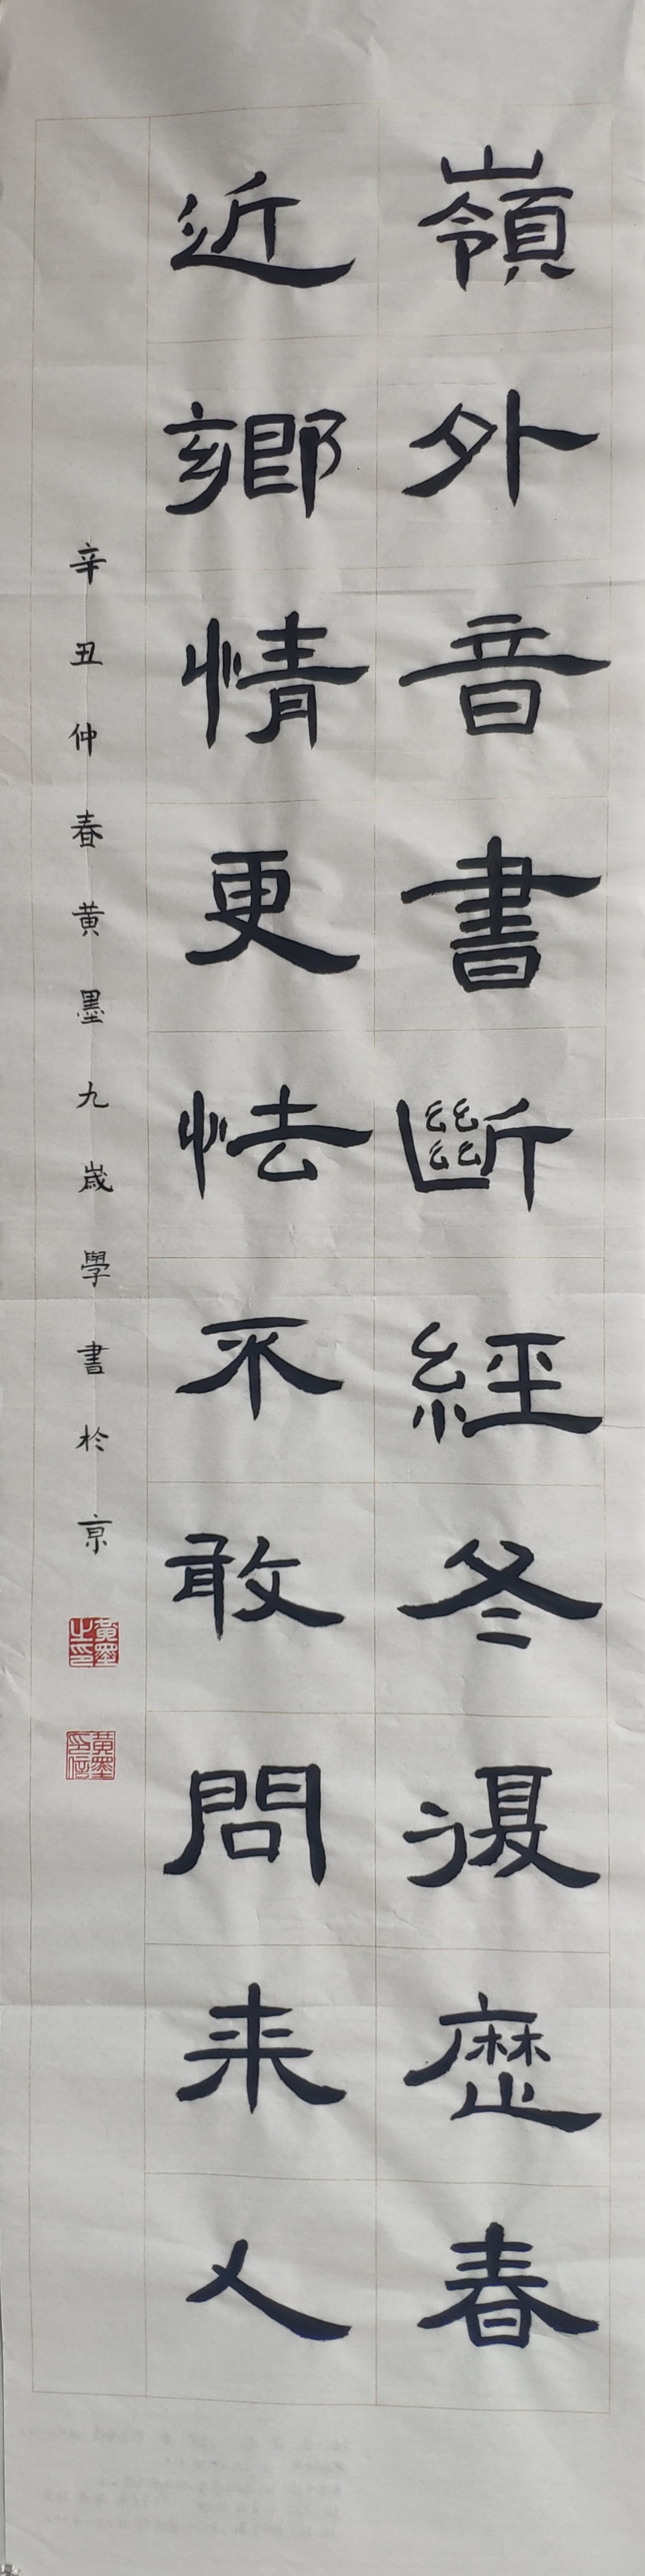 嶺外音書斷經冬復歷春
近鄉情更怯不敢問来人
辛丑仲春黄墨九歲學書於京
黄墨之印
黄墨印信